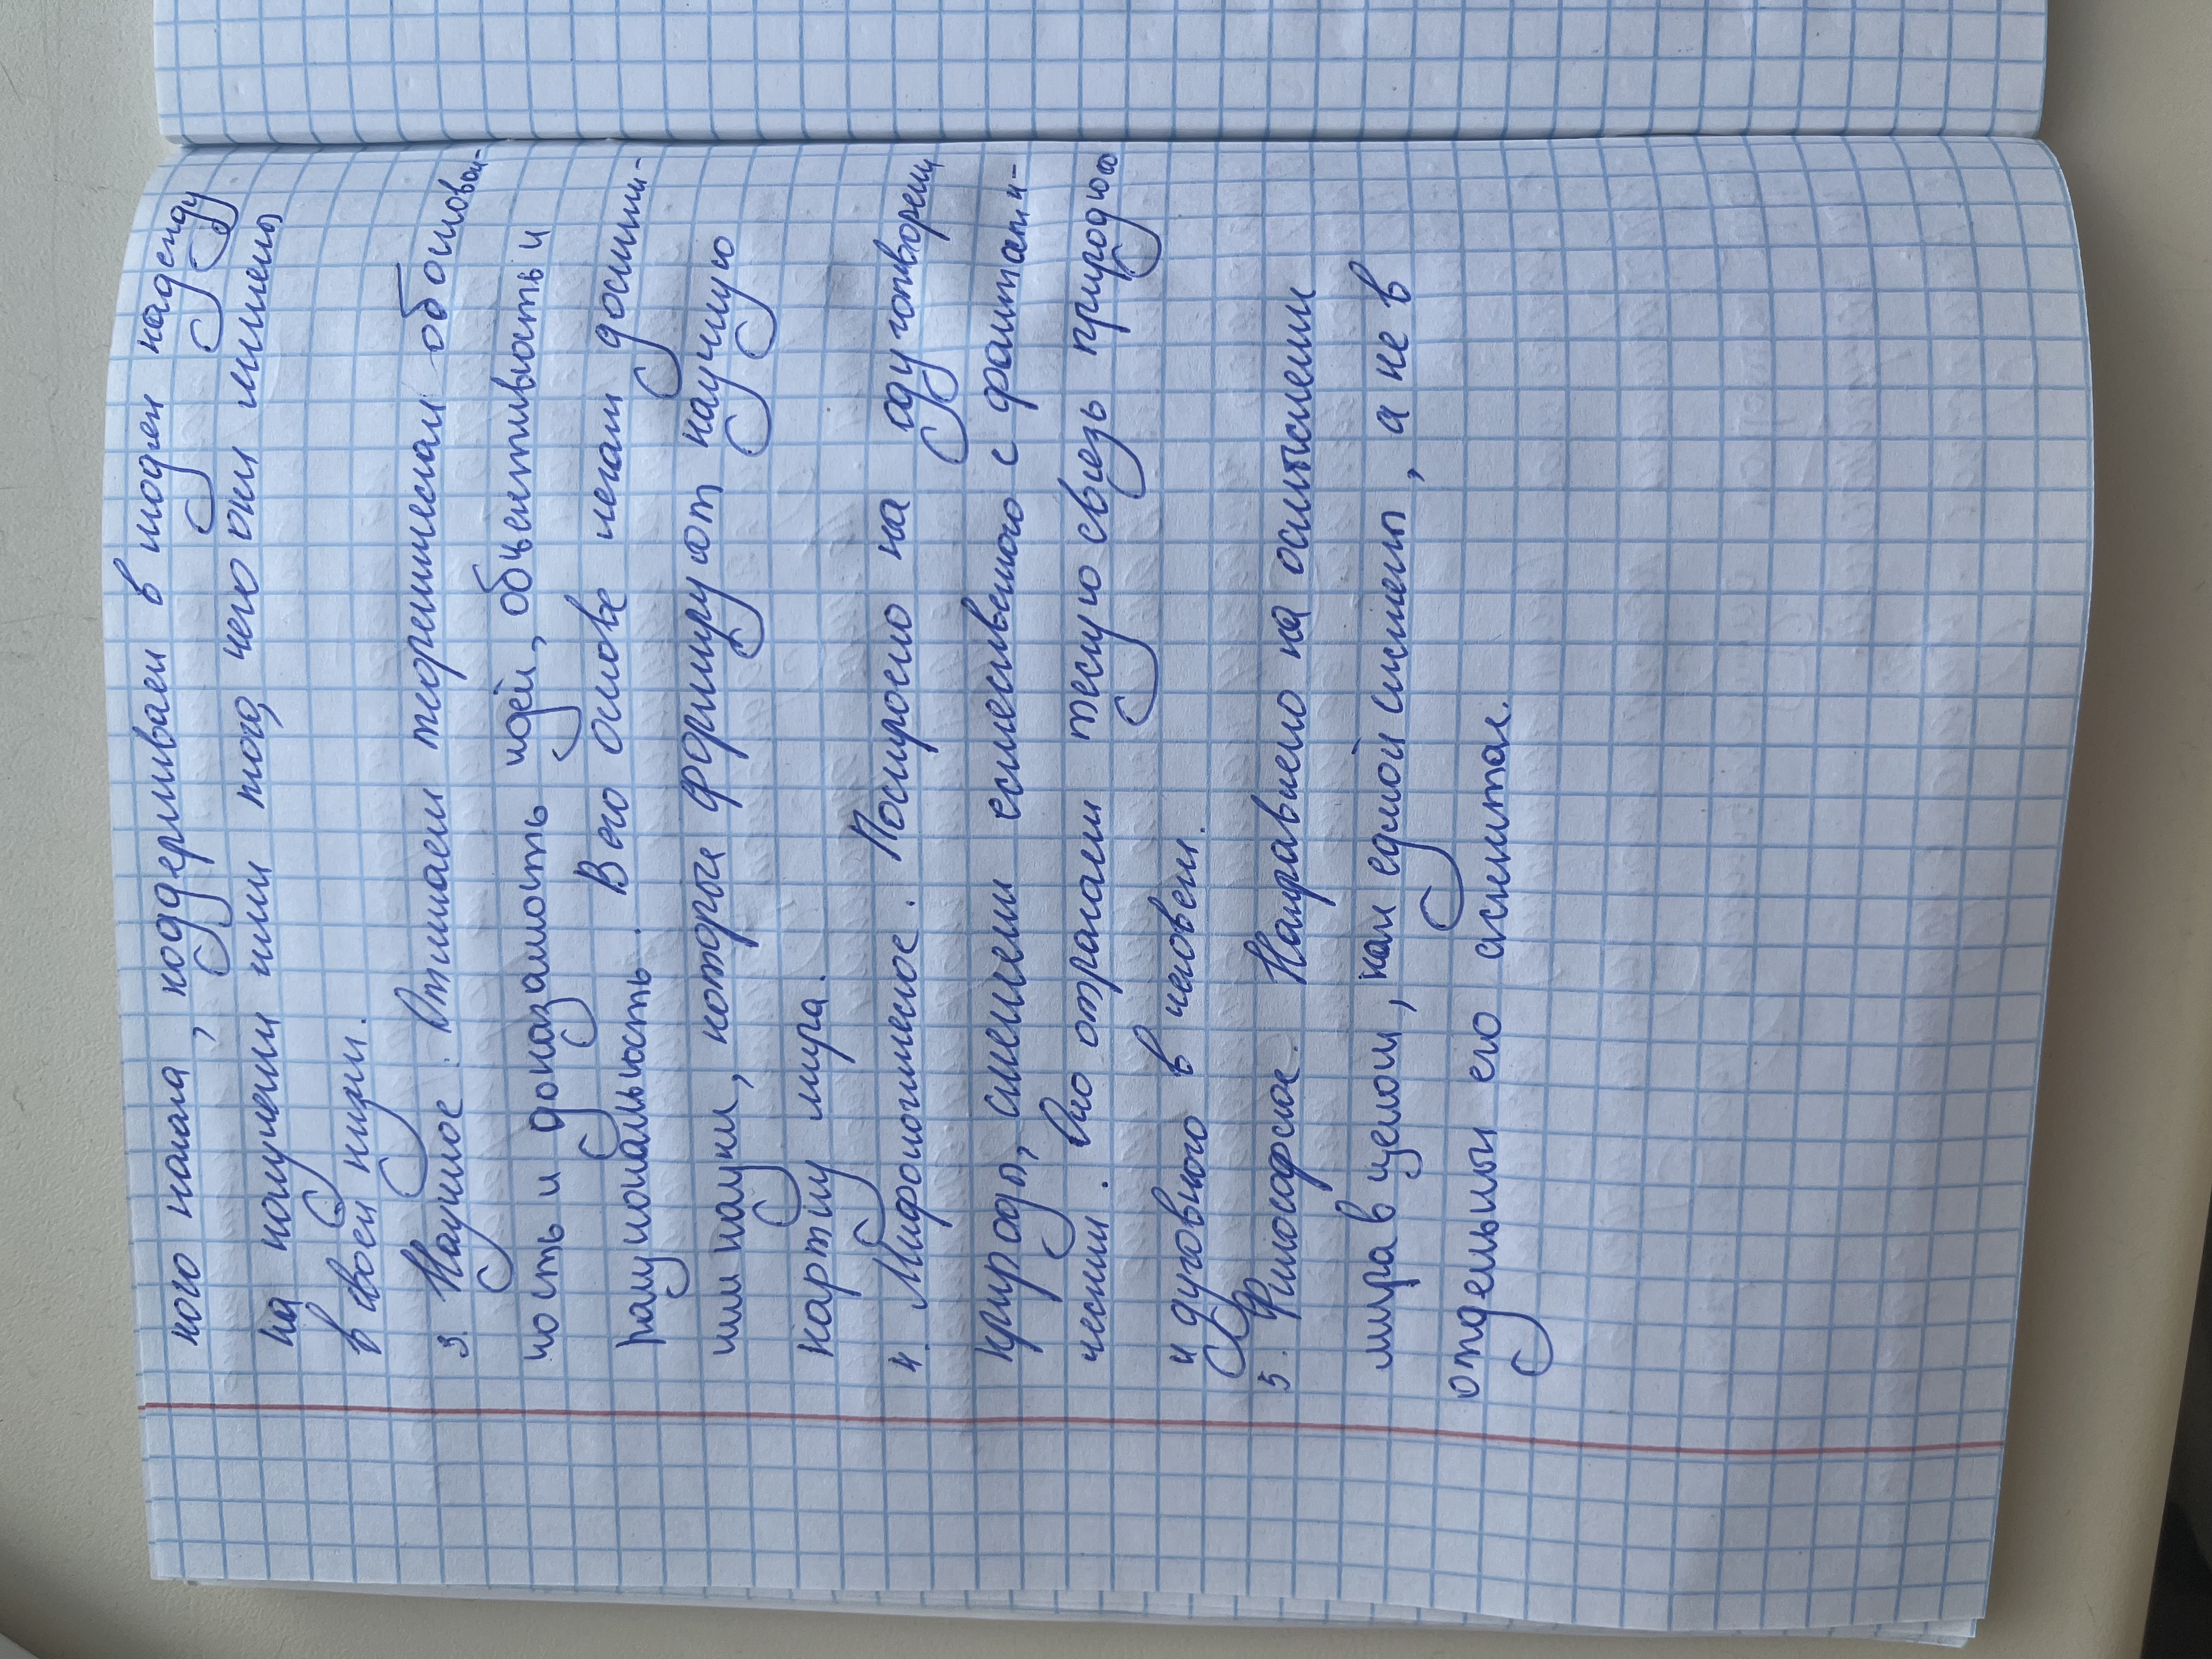 ного начала, поддерживает в людях надежду
на получении ими того, чего они лишены
в своей жизни.
3. Научное. Отличает теоретическая обоснован-
ность и доказаность идей, объективность и
рациональность. В его основе лежат достиже-
ния науки, которые формируют научную
картину мира.
4. Мифологичное. Построено на одухотворении
природы, смешении естественного с фантасти-
ческим. Оно отражает тесную связь природного
и духовного в человеке.
5. Философское. Направлено на осмысление
мира в целом, как единой системы, а не в
отдельных его аспектах.